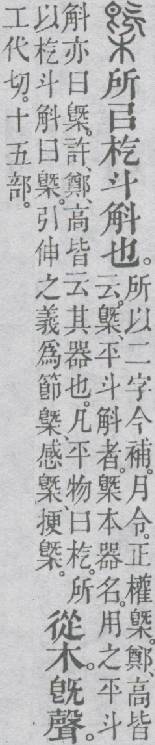 槩所㠯杚斗斛也。
所以二字今補。月令。正權槩。鄭、高皆
云。槩、平斗斛者。槩本器名。用之平斗
斛亦曰槩。許、鄭、高皆云其器也。凡平物曰杚。所
以杚斗斛曰槩。引伸之義爲節槩、感槩、挭槩。
從木。旣聲。
工代切。十五部。